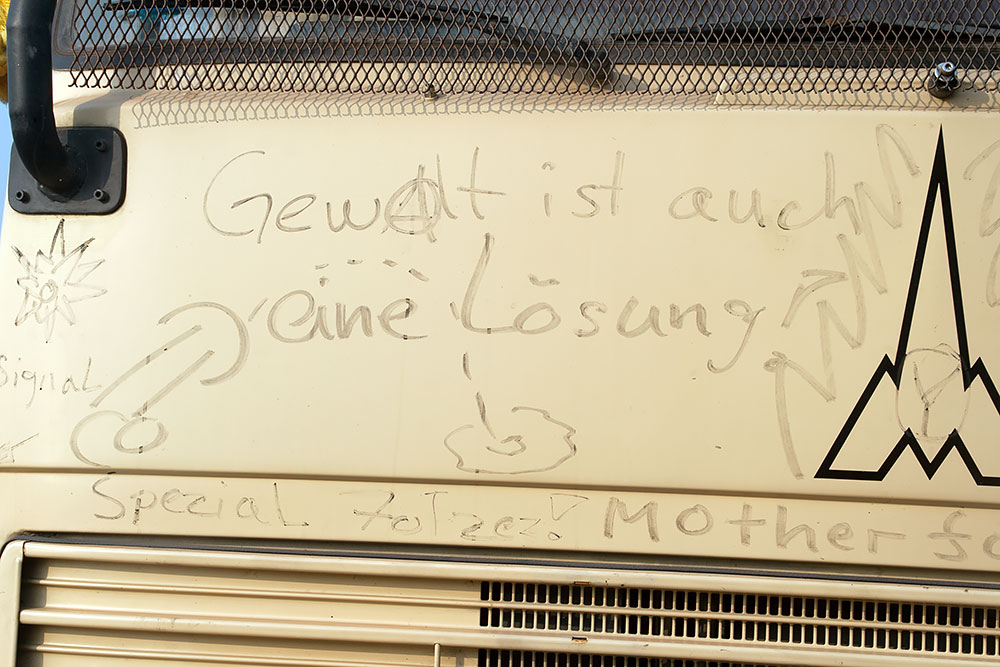 Gewalt ist auch
eine Lösung
Signal
Spezial
Motherfo